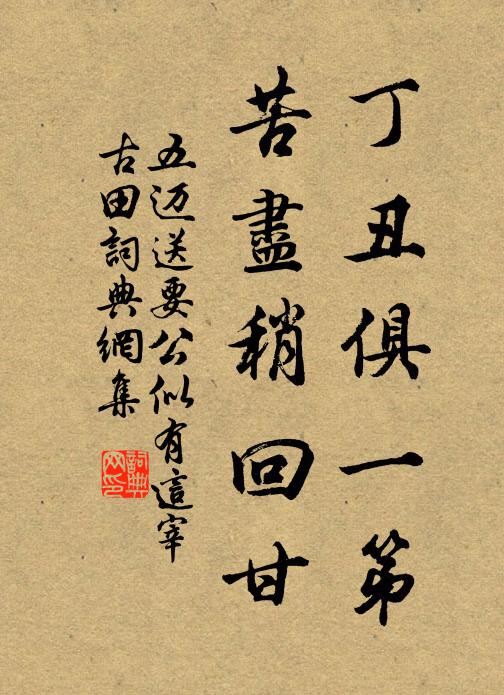 丁丑俱一第
苦盡稍回甘
五迈送要公似有這宰
古田詞典網集
詞典网印